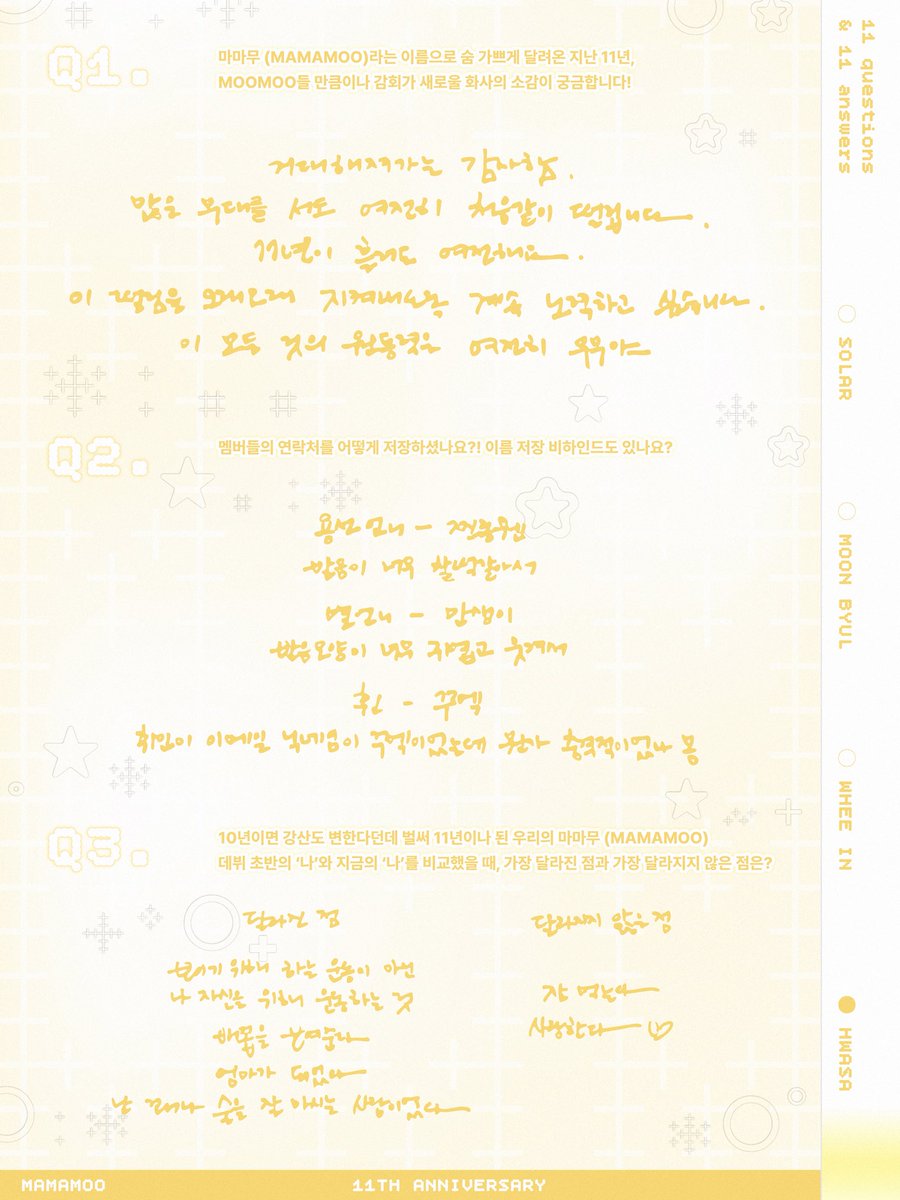 11 questions
& 11 answers
SOLAR
MOON BYUL
WHEE IN
HWASA
Q1.
마마무 (MAMAMOO)라는 이름으로 숨 가쁘게 달려온 지난 11년,
MOOMOO들 만큼이나 감회가 새로울 화사의 소감이 궁금합니다!
거대해져가는 감사함.
많은 무대를 서도 여전히 처음같이 떨립니다.
11년이 흘러도 여전해요.
이 떨림을 오래오래 지켜내도록 계속 노력하고 싶습니다.
이 모든 것의 원동력은 여전히 무무야
Q2.
멤버들의 연락처를 어떻게 저장하셨나요?! 이름 저장 비하인드도 있나요?
용선언니 -
발음이 너무 찰떡같아서
별언니 - 맘생이
발음모양이 너무 귀엽고 웃겨서
휘인 - 꾸엑
휘인이 이메일 닉네임이 꾸엑이었는데 뭔가 충격적이었나 봄
Q3.
10년이면 강산도 변한다던데 벌써 11년이나 된 우리의 마마무 (MAMAMOO)
데뷔 초반의 ‘나’와 지금의 ‘나’를 비교했을 때, 가장 달라진 점과 가장 달라지지 않은 점은?
달라진 점
빼기 위해 하는 운동이 아닌
나 자신을 위해 운동하는 것
배꼽을
엄마가 되었다
난 술을 잘 마시는 사람이었다
달라지지 않은 점
잘 먹는다
사랑한다 ♡
MAMAMOO
11TH ANNIVERSARY